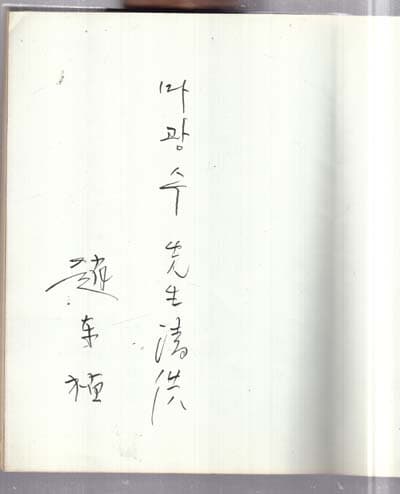 마광수 先生 清供
趙东植